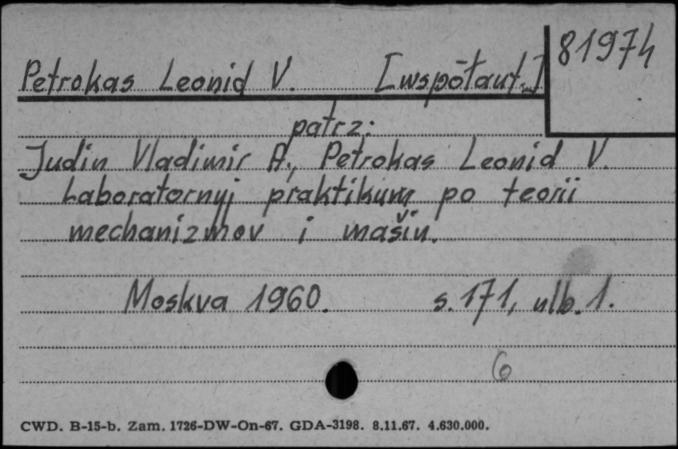 81974
Petrokas Leonid V. [współaut.]
patrz:
Judin Vladimir A., Petrokas Leonid V.
Laboratornyj praktikum po teorii
mechanizmov i mašin.
Moskva 1960. s. 171, ulb. 1.
6
CWD. B-15-b. Zam. 1726-DW-On-67. GDA-3198. 8.11.67. 4.630.000.